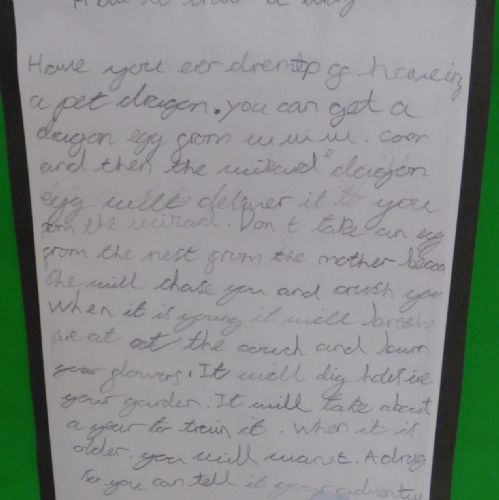 How to a baby
Have you ever dremtp of haveing
a pet dragon. you can get a
dragon egg from w.w.w. com
and then the wizard dragon
egg will deliver it to you
from the wizard. Don't take an egg
from the nest from the mother becau
She will chase you and crush you
When it is young it will breathe
fire at the couch and burn
your flowers. It will dig holes in
your garden. It will take about
a year to train it. When it is
older. you will want. A drag
so you can tell it your adventu